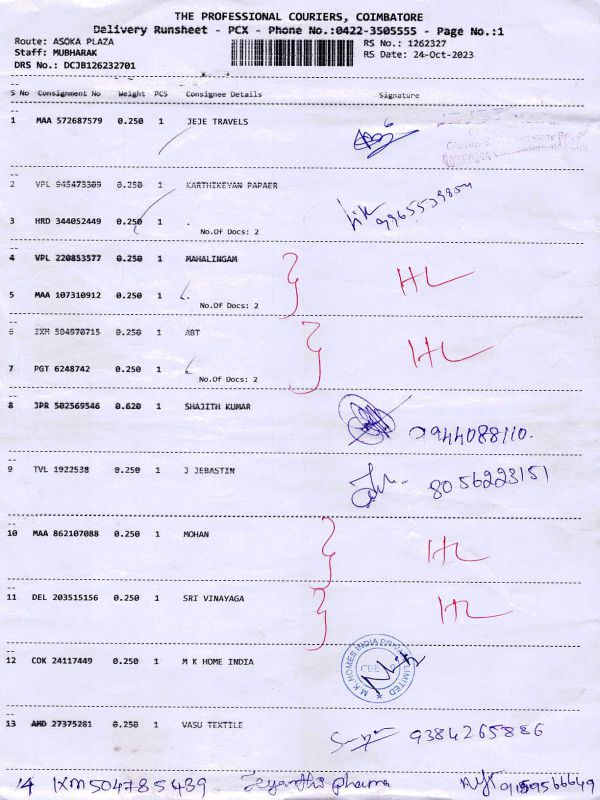 THE PROFESSIONAL COURIERS, COIMBATORE
Delivery Runsheet - PCX - Phone No.:0422-3505555 - Page No.:1
Route: ASOKA PLAZA RS No.: 1262327
Staff: MUBHARAK RS Date: 24-Oct-2023
DRS No.: DCJB126232701
S No Consignment No Weight PCS Consignee Details Signature
1 MAA 572687579 0.250 1 JEJE TRAVELS
2 VPL 945473309 0.250 1 KARTHIKEYAN PAPAER
3 HRD 344052449 0.250 1 .
No.Of Docs: 2
4 VPL 220853577 0.250 1 MAHALINGAM HL
5 MAA 107310912 0.250 1 .
No.Of Docs: 2
6 IXM 504970715 0.250 1 ABT HL
7 PGT 6248742 0.250 1 .
No.Of Docs: 2
8 JPR 502569546 0.620 1 SHAJITH KUMAR 9944088110.
9 TVL 1922538 0.250 1 J JEBASTIN 8056223151
10 MAA 862107088 0.250 1 MOHAN HL
11 DEL 203515156 0.250 1 SRI VINAYAGA HL
12 COK 24117449 0.250 1 M K HOME INDIA M K HOMES INDIA PRIVATE LIMITED CBE
13 AMD 27375281 0.250 1 VASU TEXTILE 9384265886
14 IXM504785439 Jeyanthi pharma